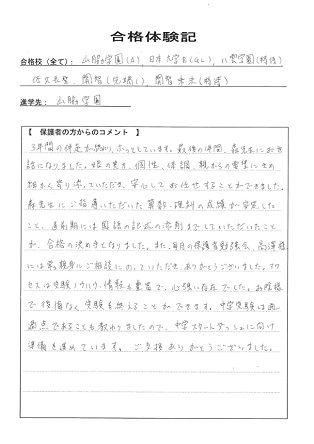 合格体験記
合格校(全て): 山脇学園(A)、日本大学B(GL)、八雲学園(特待)
佐久長聖、開智(先端1)、開智未来(特待)
進学先: 山脇学園
【 保護者の方からのコメント 】
3年間の伴走が終わり、ホッとしています。最後の1年間、森先生にお世
話になりました。娘の実力、個性、体調、親からの要望にきめ
細かく寄り添っていただき、安心してお任せすることができました。
森先生にご指導いただいた算数・理科の成績が安定した
こと、直前期には国語の記述の添削までしていただいたこと
が、合格の決め手となりました。また、毎月の保護者勉強会、高濱様
には常に親身にご相談にのっていただき、ありがとうございました。アク
セスは受験ノウハウ、情報も豊富で、心強い存在でした。お陰様
で後悔なく受験を終えることができます。中学受験は通
過点であることも教わりましたので、中学スタートダッシュに向け
準備を進めています。ご支援ありがとうございました。